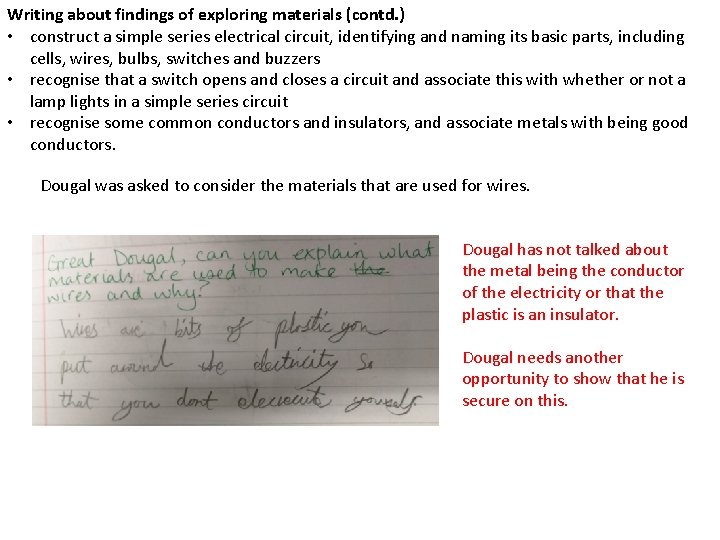 Writing about findings of exploring materials (contd.)
• construct a simple series electrical circuit, identifying and naming its basic parts, including
cells, wires, bulbs, switches and buzzers
• recognise that a switch opens and closes a circuit and associate this with whether or not a
lamp lights in a simple series circuit
• recognise some common conductors and insulators, and associate metals with being good
conductors.
Dougal was asked to consider the materials that are used for wires.
Great Dougal, can you explain what
materials are used to make the
wires and why?
Wires are bits of plastic you
put around the electricity so
that you dont elecrocute yourself
Dougal has not talked about
the metal being the conductor
of the electricity or that the
plastic is an insulator.
Dougal needs another
opportunity to show that he is
secure on this.